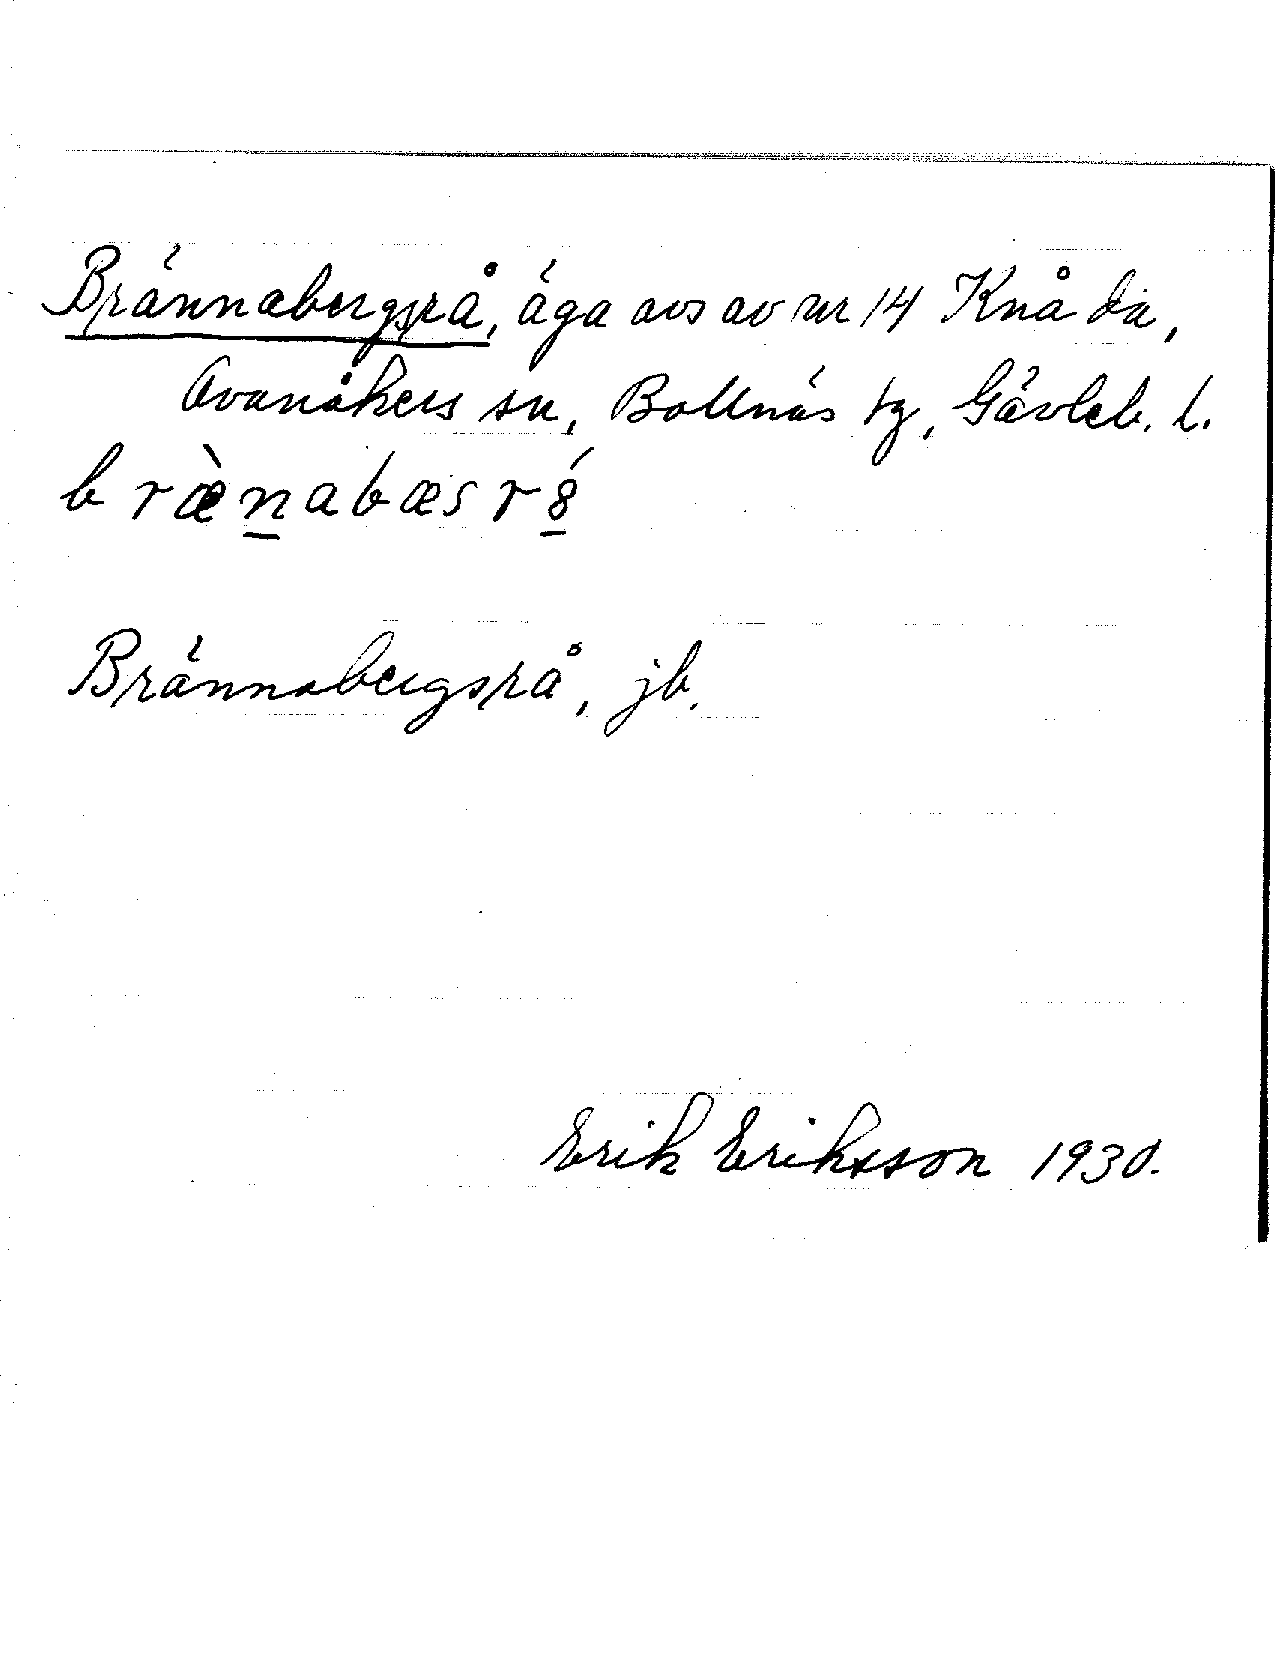 Brännabergsrå, äga avs av nr 14 Knåda,
Ovanåkers sn, Bollnäs tg, Gävleb. l.
bræ̀n̲abæsr8̲́
Brännabergsrå, jb.
Erik Eriksson 1930.